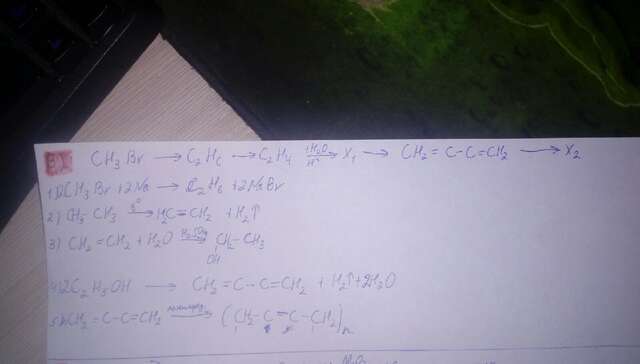 CH₃Br → C₂H₆ → C₂H₄ +H₂O/H⁺→ X₁ → CH₂=C-C=CH₂ → X₂
1) 2CH₃Br + 2Na → C₂H₆ + 2NaBr
2) CH₃-CH₃ t°→ H₂C=CH₂ + H₂↑
3) CH₂=CH₂ + H₂O H₂SO₄→ CH₂-CH₃
OH
4) 2C₂H₅OH → CH₂=C-C=CH₂ + H₂↑ + 2H₂O
5) nCH₂=C-C=CH₂ → (CH₂-C=C-CH₂)n